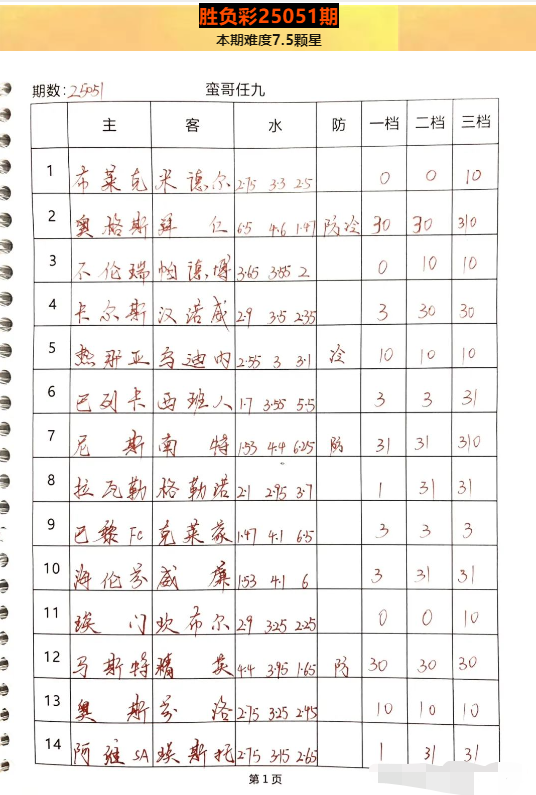 胜负彩25051期
本期难度7.5颗星
期数: 25051 蛮哥任九
主 客 水 防 一档 二档 三档
1 布莱克 米德尔 2.75 3.3 2.5 0 0 10
2 奥格斯 拜仁 6.5 4.6 1.47 防冷 30 30 310
3 不伦瑞 帕德博 3.65 3.55 2 0 10 10
4 卡尔斯 汉诺威 2.9 3.5 2.35 3 30 30
5 热那亚 乌迪内 2.55 3 3.1 冷 10 10 10
6 巴列卡 西班人 1.7 3.55 5.5 3 3 31
7 尼斯 南特 1.53 4.4 6.25 防 31 31 310
8 拉瓦勒 格勒诺 2.1 2.95 3.7 1 31 31
9 巴黎FC 克莱蒙 1.47 4.1 6.5 3 3 3
10 海伦芬 威廉 1.53 4.1 6 3 31 31
11 埃门 坎布尔 2.9 3.25 2.25 0 0 10
12 马斯特 精英 4.4 3.95 1.65 防 30 30 30
13 奥斯 芬洛 2.75 3.25 2.45 10 10 10
14 阿维SA 埃斯托 2.75 3.15 2.65 1 31 31
第1页